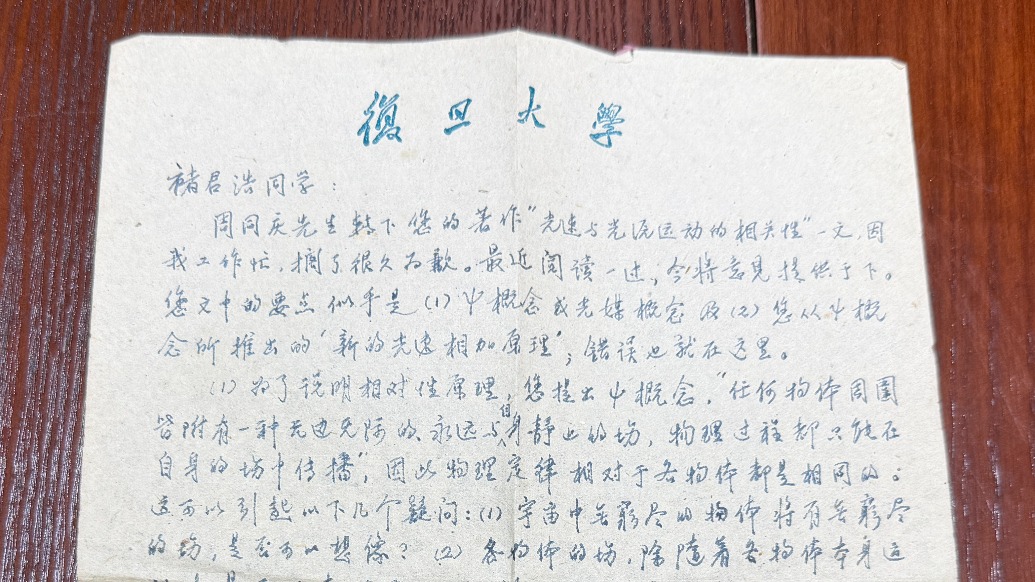 復旦大學
褚君浩同学：
周同庆先生转下您的著作"光速与光源运动的相关性"一文,因
我工作忙,搁了很久为歉。最近阅读一过,今将意见提供于下。
您文中的要点似乎是(1)ψ概念或光媒概念及(2)您从ψ概
念所推出的"新的光速相加原理",错误也就在这里。
(1)为了说明相对性原理,您提出ψ概念,"任何物体周围
皆附有一种无边无际的、永远与自身静止的场,物理过程都只能在
自身的场中传播",因此物理定律相对于各物体都是相同的。
这可以引起以下几个疑问:(1)宇宙中无穷尽的物体将有无穷尽
的场,是否可以想像?(2)各物体的场,除随着各物体本身运